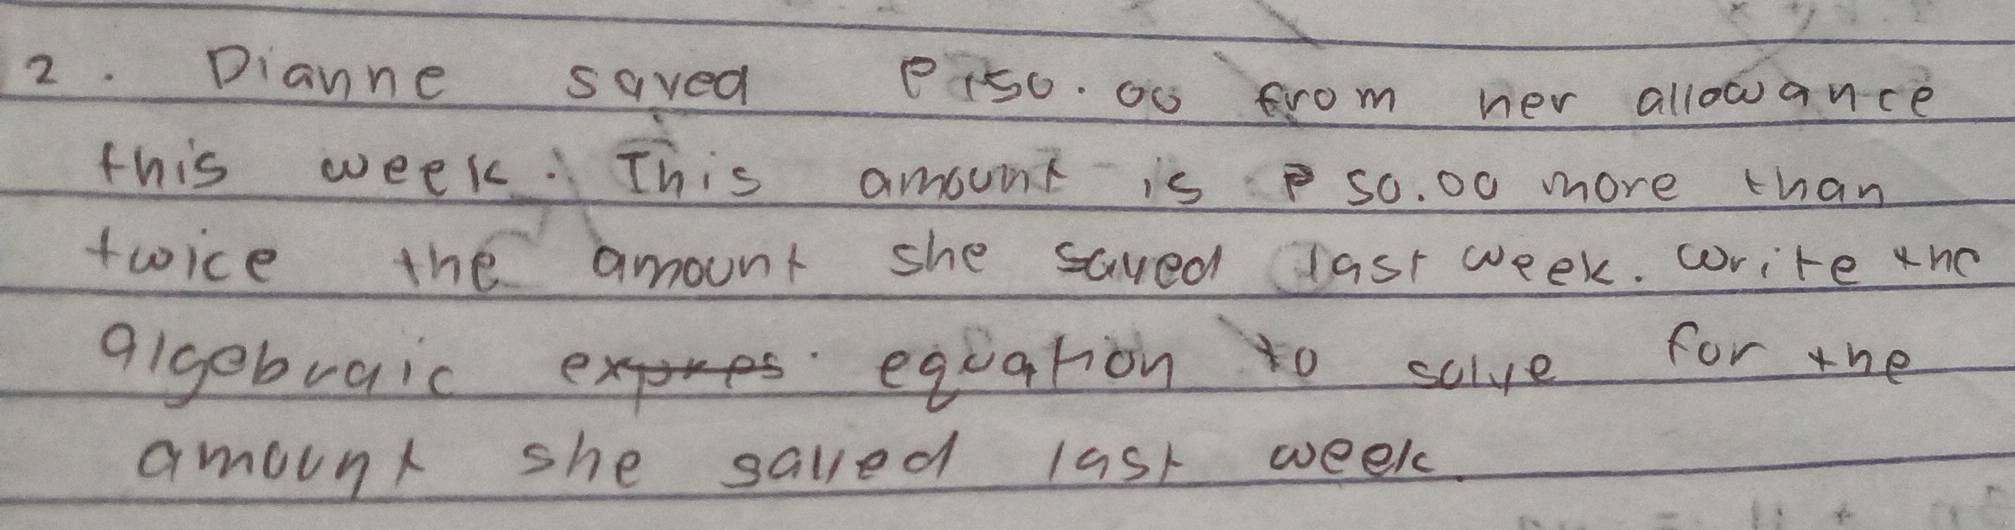 2. Dianne saved ₱150.00 from her allowance
this week. This amount is ₱50.00 more than
twice the amount she saved last week. Write the
algebraic expres equation to solve for the
amount she saved last week.